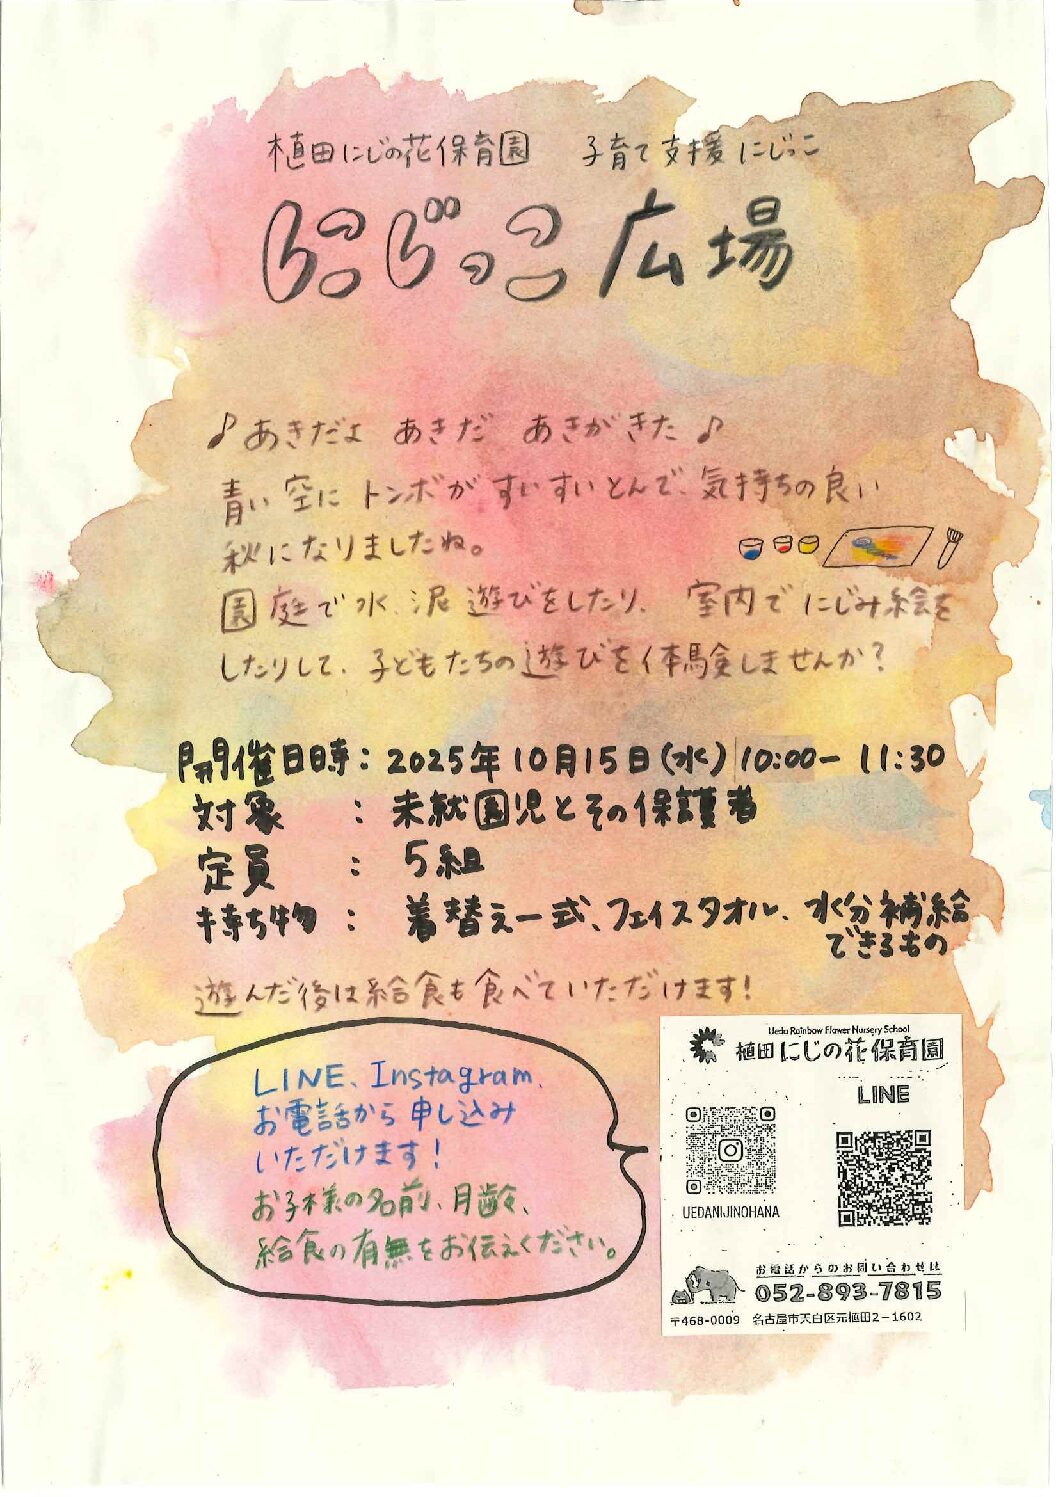 植田にじの花保育園　子育て支援にじっこ
にじっこ広場
♪あきだよ　あきだ　あきがきた♪
青い空にトンボがすいすいとんで、気持ちの良い
秋になりましたね。
園庭で水、泥遊びをしたり、室内でにじみ絵を
したりして、子どもたちの遊びを体験しませんか？
開催日時：2025年10月15日(水) 10:00ー11:30
対象　：未就園児とその保護者
定員　：5組
持ち物：着替え一式、フェイスタオル、水分補給
できるもの
遊んだ後は給食も食べていただけます！
LINE、Instagram、
お電話から申し込み
いただけます！
お子様の名前、月齢、
給食の有無をお伝えください。
Ueda Rainbow Flower Nursery School
植田にじの花保育園
LINE
UEDANIJINOHANA
お電話からのお問い合わせは
052-893-7815
〒468-0009　名古屋市天白区元植田2－1602